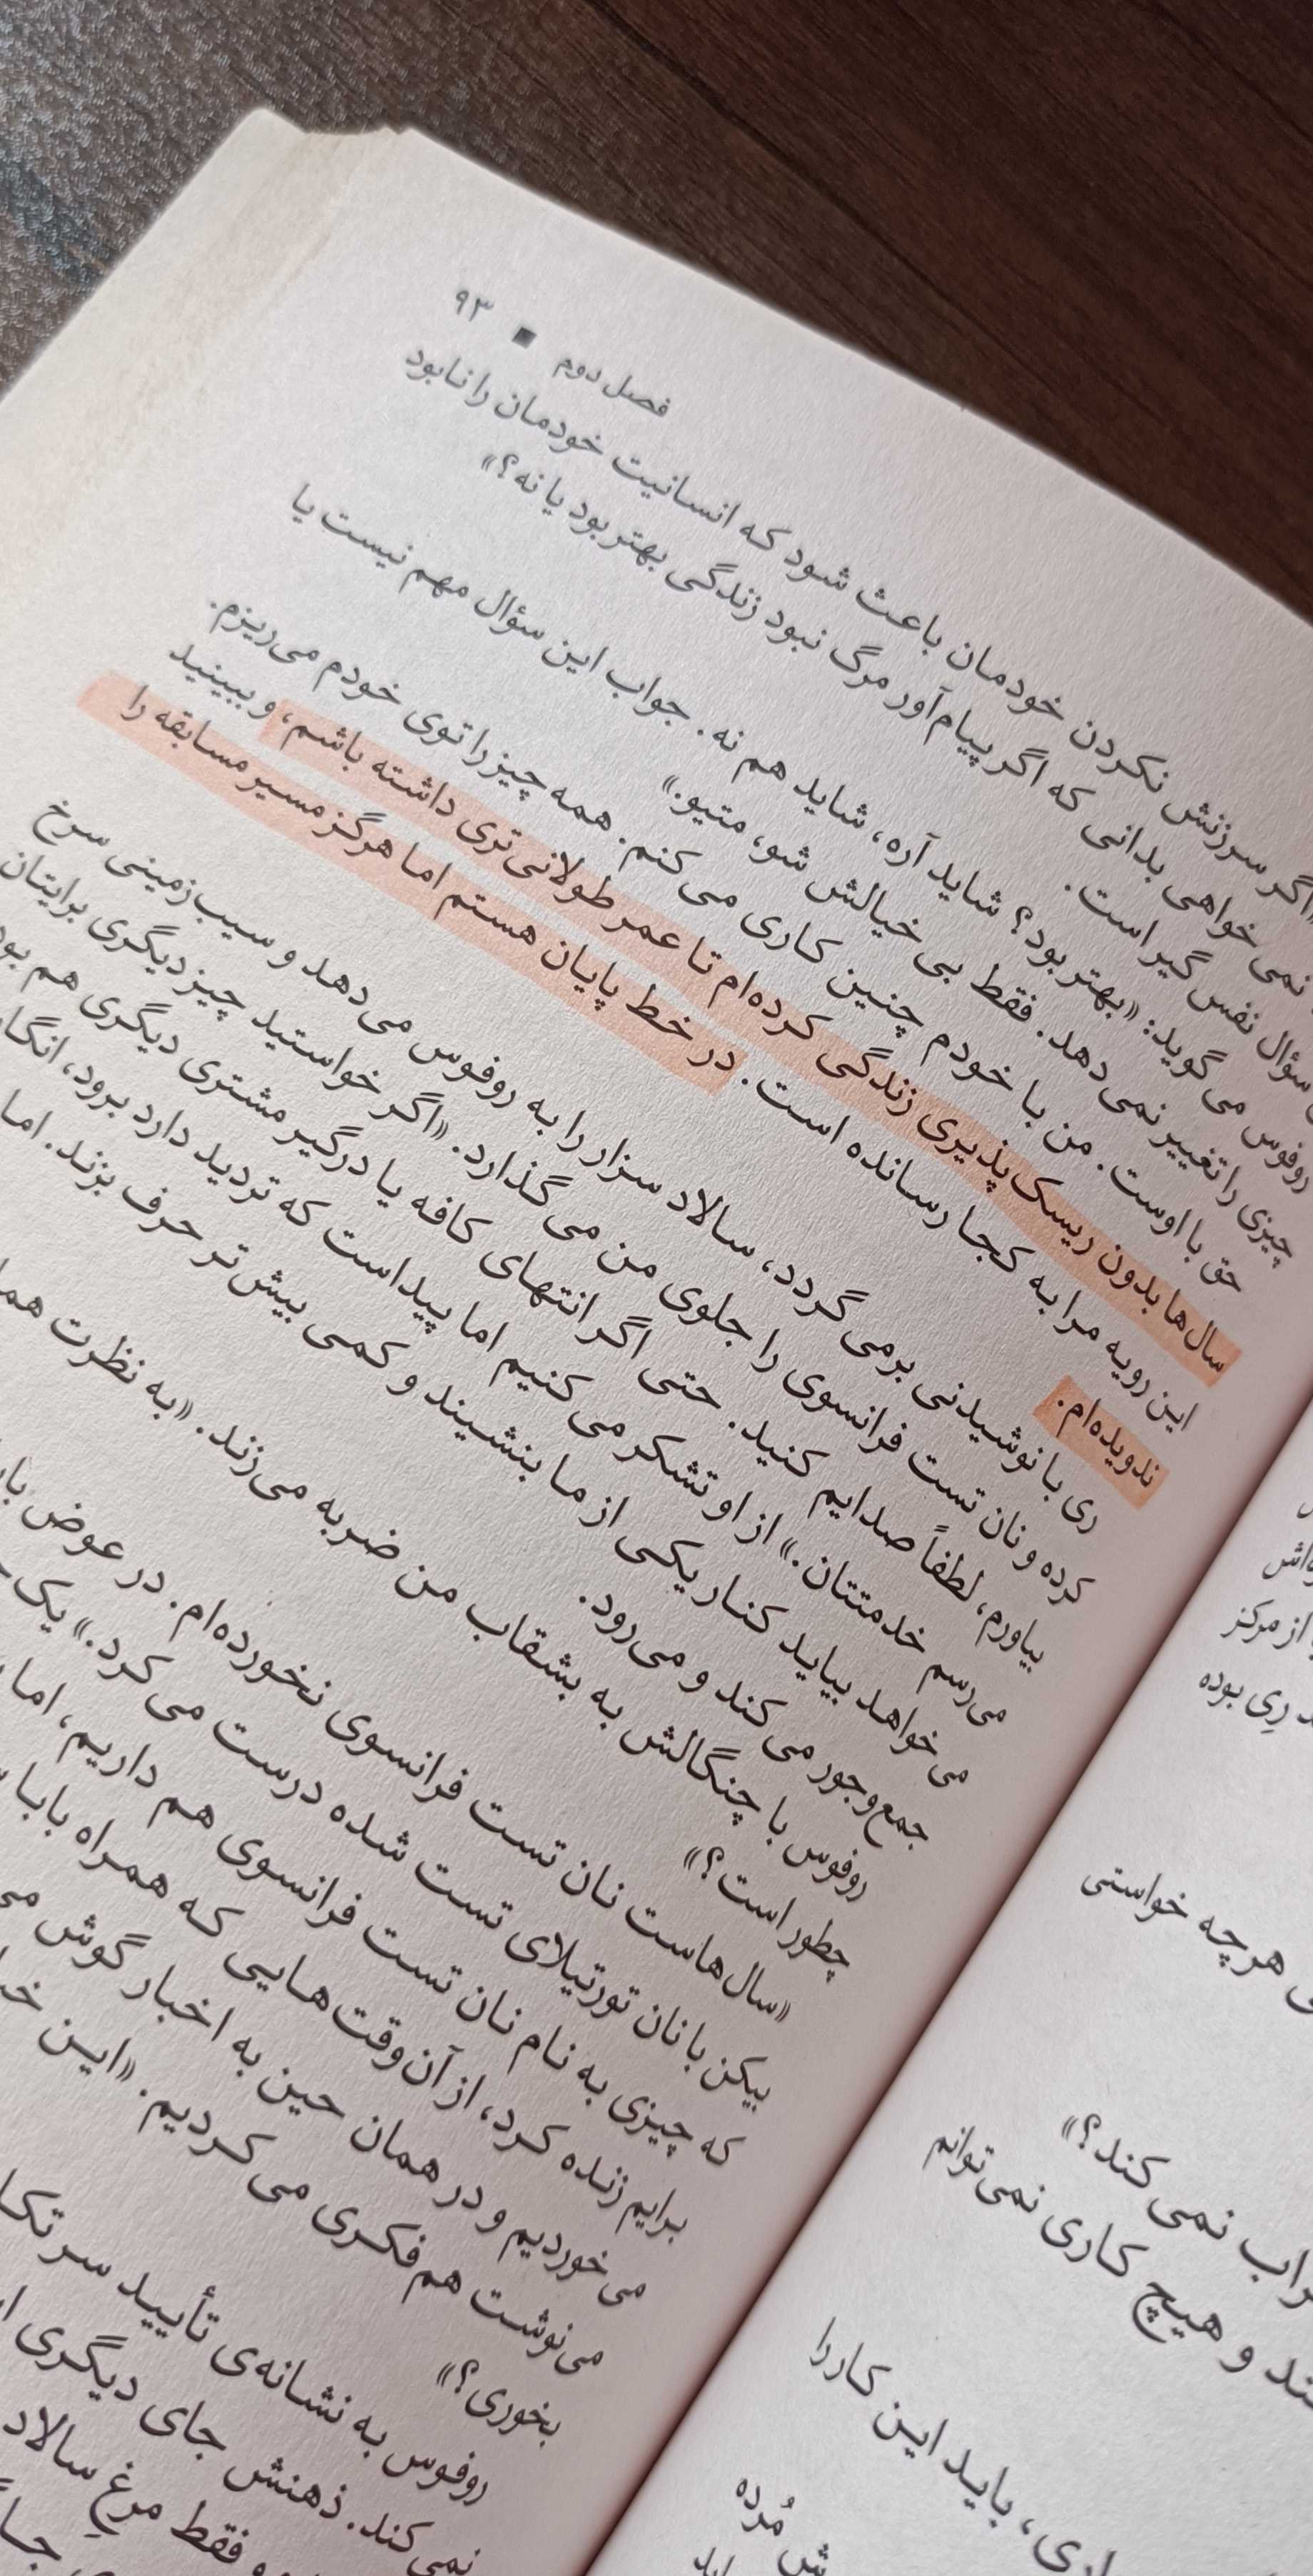 فصل دوم ■ ۹۳
اگر سرزنش نکردن خودمان باعث شود که انسانیت خودمان را نابود
نمی خواهی بدانی که اگر پیام‌آور مرگ نبود زندگی بهتر بود یا نه؟»
سؤال نفس گیر است.
روفوس می گوید: «بهتر بود؟ شاید آره، شاید هم نه. جواب این سؤال مهم نیست یا
چیزی را تغییر نمی دهد. فقط بی خیالش شو، متیو.»
حق با اوست. من با خودم چنین کاری می کنم. همه چیز را توی خودم می‌ریزم.
سال‌ها بدون ریسک پذیری زندگی کرده‌ام تا عمر طولانی‌تری داشته باشم، و ببینید
این رویه مرا به کجا رسانده است. در خط پایان هستم اما هرگز مسیر مسابقه را
ندویده‌ام.
ری با نوشیدنی برمی گردد، سالاد سزار را به روفوس می دهد و سیب‌زمینی سرخ
کرده و نان تست فرانسوی را جلوی من می گذارد. «اگر خواستید چیز دیگری برایتان
بیاورم، لطفاً صدایم کنید. حتی اگر انتهای کافه یا درگیر مشتری دیگری هم
می‌رسم خدمتتان.» از او تشکر می کنیم اما پیداست که تردید دارد برود،
می خواهد بیاید کنار یکی از ما بنشیند و کمی بیش‌تر حرف بزند. اما
جمع‌و‌جور می کند و می‌رود.
روفوس با چنگالش به بشقاب من ضربه می زند. «به نظرت
چطور است؟»
«سال‌هاست نان تست فرانسوی نخورده‌ام. در عوض
بیکن با نان تورتیلای تست شده درست می کرد.» یک
که چیزی به نام نان تست فرانسوی هم داریم، اما
برایم زنده کرد، از آن وقت‌هایی که همراه بابا
می خوردیم و در همان حین به اخبار گوش
می‌نوشت هم‌فکری می کردیم. «این
بخوری؟»
روفوس به نشانه‌ی تأیید سر
نمی کند. ذهنش جای دیگری
فقط مرغِ سالاد
از مرکز
رِی بوده
هر چه خواستی
نمی کند؟»
و هیچ کاری نمی توانم
باید این کار را
مُرده